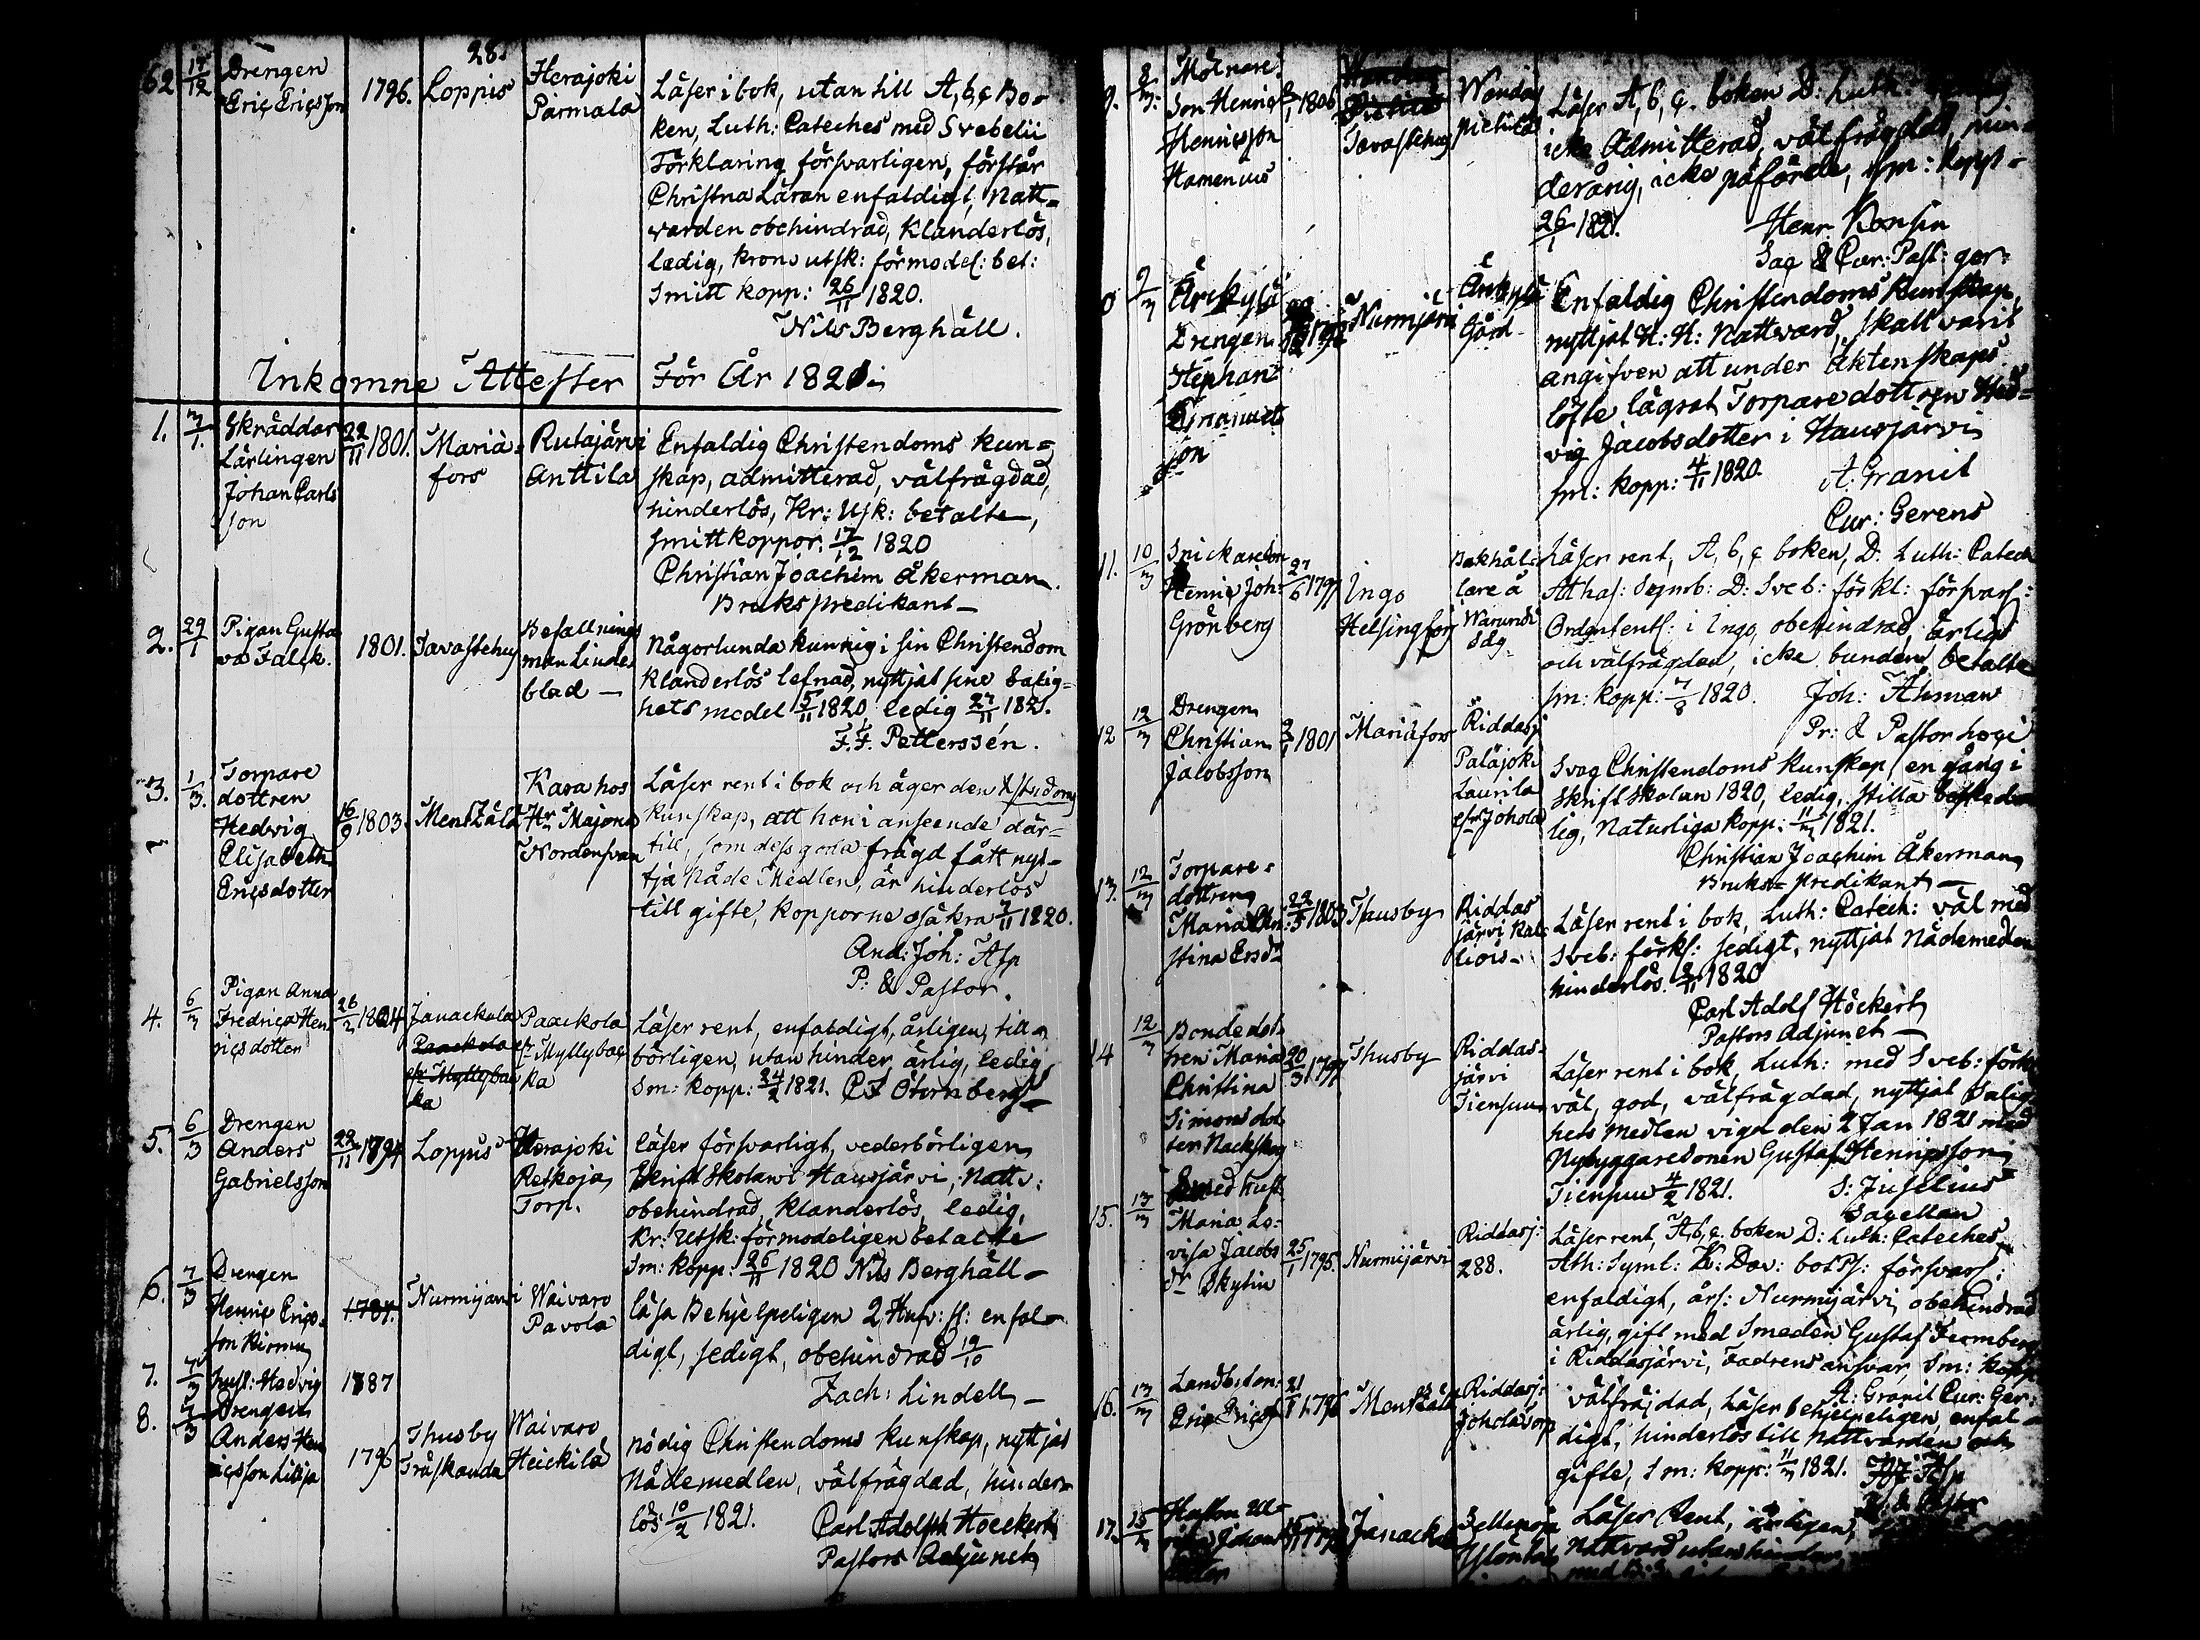 28.
62 17/12 Drengen Eriç Eriçsson 1796. Loppis Herajoki Parmala
Läser i bok, utan till A, b, ç Bo-
ken, Luth: Cateches med Svebelii
Förklaring försvarligen, förstår
Christna Läran enfaldigt, Natt-
varden obehindrad, klanderlös,
ledig, krono utsk: förmodel: bet:
Smitt kopp: 26/11 1820.
Nils Berghäll.
Inkomne Attester För År 1821
1. 3/1. Skräddar Lärlingen Johan Carlsson 22/11 1801. Mariæfors Rutajärvi Anttila
Enfaldig Christendoms kun-
skap, admitterad, välfrägdad,
hinderlös, Kr: Usk: betalte,
smittkoppor: 17/12 1820
Christian Joachim Åkerman.
Bruks predikant
2. 29/1 Pigan Gustava Falçk. 1801. Tavastehus Befallningsman Lindeblad
Någorlunda kunnig i sin Christendom
klanderlös lefnad, nyttjat sine Salig-
hets medel 5/11 1820, ledig 27/11 1821.
F. F. Petterssén.
3. 1/3. Torpare dottren Hedvig Elisabeth Eriçsdotter 16/9 1803. Mentzälä Kara hos Hr Majoren Nordensvan
Läser rent i bok och äger den Xstendoms
kunskap, att hon i anseende där-
till, som dess goda frägd fått nyt-
tja Nåde Medlen, är hinderlös
till gifte, kopporne osäkra 7/11 1820.
And: Joh: Asp
P: & Pastor.
4. 6/3 Pigan Anna Fredriça Henriçsdotter 26/2 1804 Janackala Paackola Myllybaçka
Läser rent, enfaldigt, årligen, till-
börligen, utan hinder, ärlig, ledig
Sm: kopp: 24/2 1821.
5. 6/3 Drengen Anders Gabrielsson 22/11 1794 Loppis Herajoki Retkoja Torp.
läser försvarligt, vederbörligen
Skrift Skolan i Hausjärvi, Nattv:
obehindrad, klanderlös, ledig,
Kr: Utsk: förmodeligen betalte
Sm: kopp: 26/11 1820 Nils Berghäll
6. 7/3 Drengen Henriç Eriçsson 1784. Nurmijärvi Waivaro Pavola
läsa Behjelpeligen 2 Hufv: st: enfal-
digt, sedigt, obehindrad 19/10
Zach: Lindell
7. 7/3 hust: Hedvig 1787
8. 7/3 Drengen Anders Henriçsson 1796 Thusby Träskanda Waivaro Heickilä
nödig Christendoms kunskap, nyttjat
Nådemedlen, välfrägdad, hinder-
lös 10/2 1821. Carl Adolph Hoeckert
Pastors Adjunct
9. Mölnare Son Henriç Henriçsson Hamenius 1806 Tavastehus Pietilä
Läser A, b, ç. boken D: Luth:
icke Admitterad, välfrägdad, min-
derårig, icke påförde, sm: kopp
26/1 1821. Henr: Ronsin
Saç & Cur: Past: ger:
9/3 Drengen Stephan Nurmijärvi Gård
Enfaldig Christendoms kunskap,
nyttjat H: H: Nattvard, skall varit
angifven att under äktenskaps
löfte lägrat Torparedottren Hed-
vig Jacobsdotter i Hausjärvi
sm: kopp: 4/11 1820. A: Granit
Cur: Gerens
11. 10/3 Henriç Joh: Grönberg 27/6 1797 Ingo Helsingfors Bokhållare å
Läser rent, A, b, ç boken, D: Luth: Catech
Athas: Symb: D: Sveb: förkl: försvarl:
i Ingo, obehindrad, ärlig
och välfrägdad, icke bunden, betalte
sm: kopp: 7/8 1820. Joh: Åhman
Pr: & Pastor loçi
12 12/3 Drengen Christian Jacobsson 1801 Mariæfors Riddasj: Palajoki Laurila Johola
Svag Christendoms kunskap, en gång i
Skriftskolan 1820, ledig, stilla beskede-
lig, Naturliga kopp: 11/3 1821.
Christian Joachim Åkerman
Bruks-predikant
13. 12/3 Torpare-dottren Maria Christina Ersdr 1803 Thusby Riddasjärvi
Läser rent i bok, Luth: Catech: väl med
Sveb: förkl: sedigt, nyttjat Nådemedlen
hinderlös. 1820
Carl Adolf Höckert
Pastors Adjunct
14 12/3 Bonde dottren Maria Christina Simonsdotter 20/3 1797 Thusby Riddasjärvi Tiensuu
Läser rent i bok, Luth: med Sveb: förk:
väl, god, välfrägdad, nyttjat Salig-
hets Medlen vigd den 2 Jan 1821 med
Nybyggaresonen Gustaf Henriçsson
Tiensuu 4/2 1821. S: Juselius
Saçellan
15. 13/3 Smed hust: Maria Lovisa Jacobsdr Skytin 25/1 1795. Nurmijärvi Riddasj: 288.
Läser rent, A, b, ç. boken D: Luth: Cateches
Ath: Symb: försvarl:
enfaldigt, årl: Nurmijärvi, obehindrad
ärlig, gift med Smeden Gustaf
i Riddasjärvi, Fadrens ansvar, Sm: kopp
A: Granit Cur: Ger:
16. 13/3 Eriç Eriçss 1796 Mentzälä Riddasj: Johola Torp
välfräjdad, Läser behjelpeligen, enfal-
digt, hinderlös till Nattvarden och
gifte, Sm: kopp: 11/3 1821.
17. 15/3 Janackala
Läser Rent, årligen,
Nattvard utan hinder